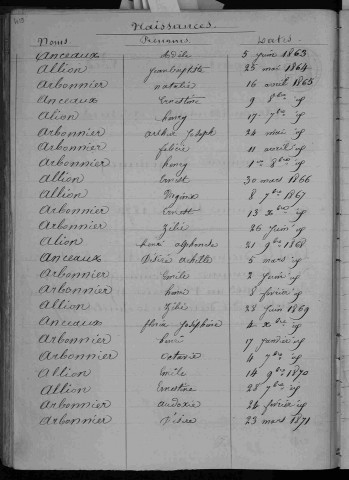 Naissances.
Noms Prénoms Dates
Anceaux Adèle 5 juin 1863
Allion Jean baptiste 25 mai 1864
Arbonnier natalie 16 avril 1865
Anceaux Ernestine 9 8bre id
Alion henry 17 7bre id
Arbonnier arthur Joseph 24 mai id
Arbonnier felicie 11 avril id
Arbonnier henry 1er 8bre id
Allion Ernest 30 mars 1866
Allion Virginie 8 7bre 1867
Arbonnier Ernest 13 Xbre id
Arbonnier Zélie 26 juin id
Alion alphonse 21 9bre 1868
Anceaux Désiré 5 mars id
Arbonnier Emile 2 juin id
Arbonnier 8 fevrier id
Allion Zélie 28 juin 1869
Anceaux flore Joséphine 4 Xbre id
Arbonnier henri 17 janvier id
Arbonnier octavie 4 7bre id
Allion Emile 14 9bre 1870
Allion Ernestine 28 7bre id
Arbonnier audoxie 26 fevrier id
Arbonnier Désiré 23 mars 1871